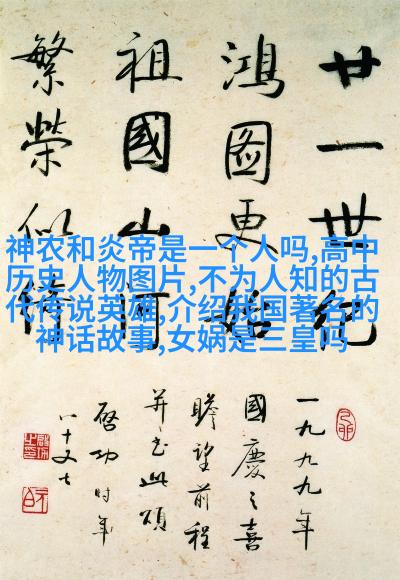 廿一世紀
鴻圖更始
祖國山河
繁榮似
一九九九年
國慶之喜
瞻望前程
并書此頌
啓功时年
八十又七
神农和炎帝是一个人吗,高中
历史人物图片,不为人知的古
代传说英雄,介绍我国著名的
神话故事,女娲是三皇吗